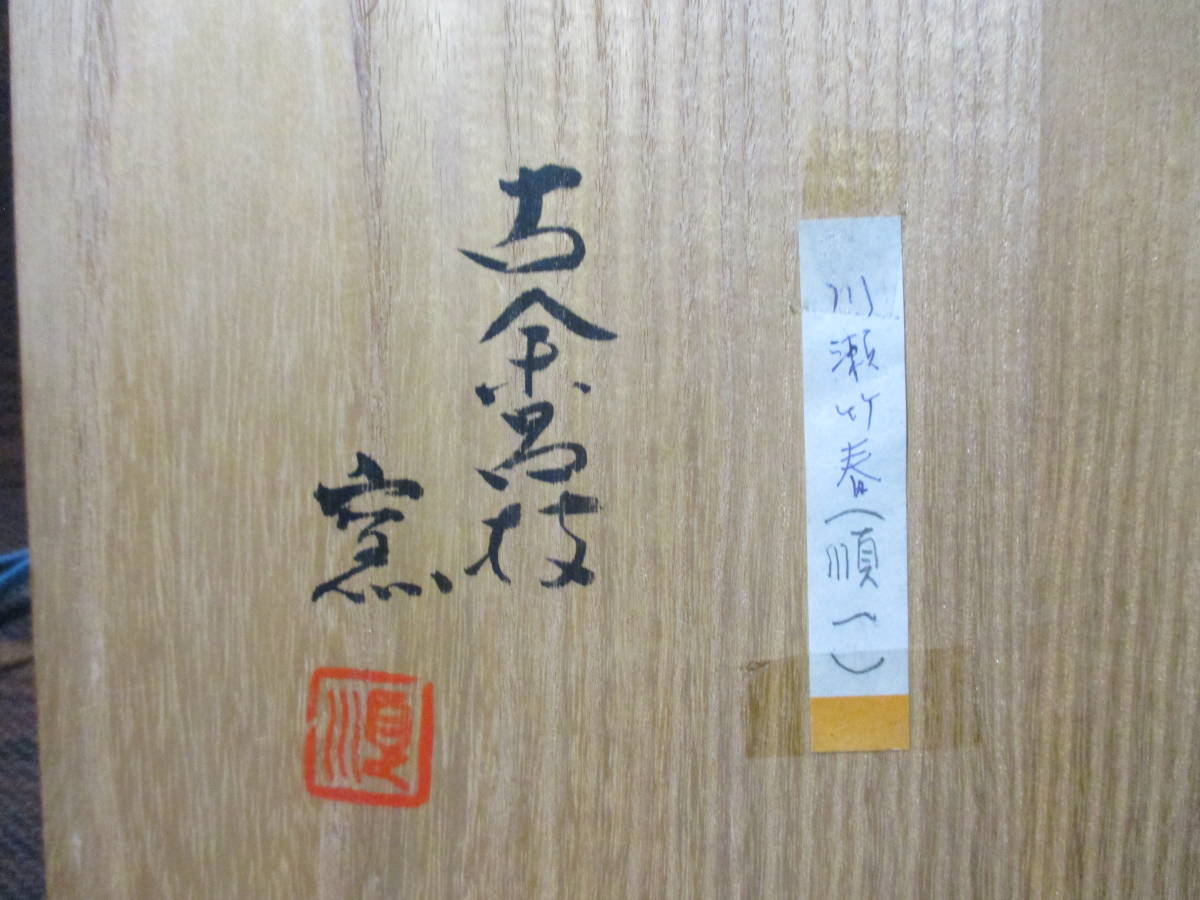 川瀬竹春(順一)
古余呂技
窯
順